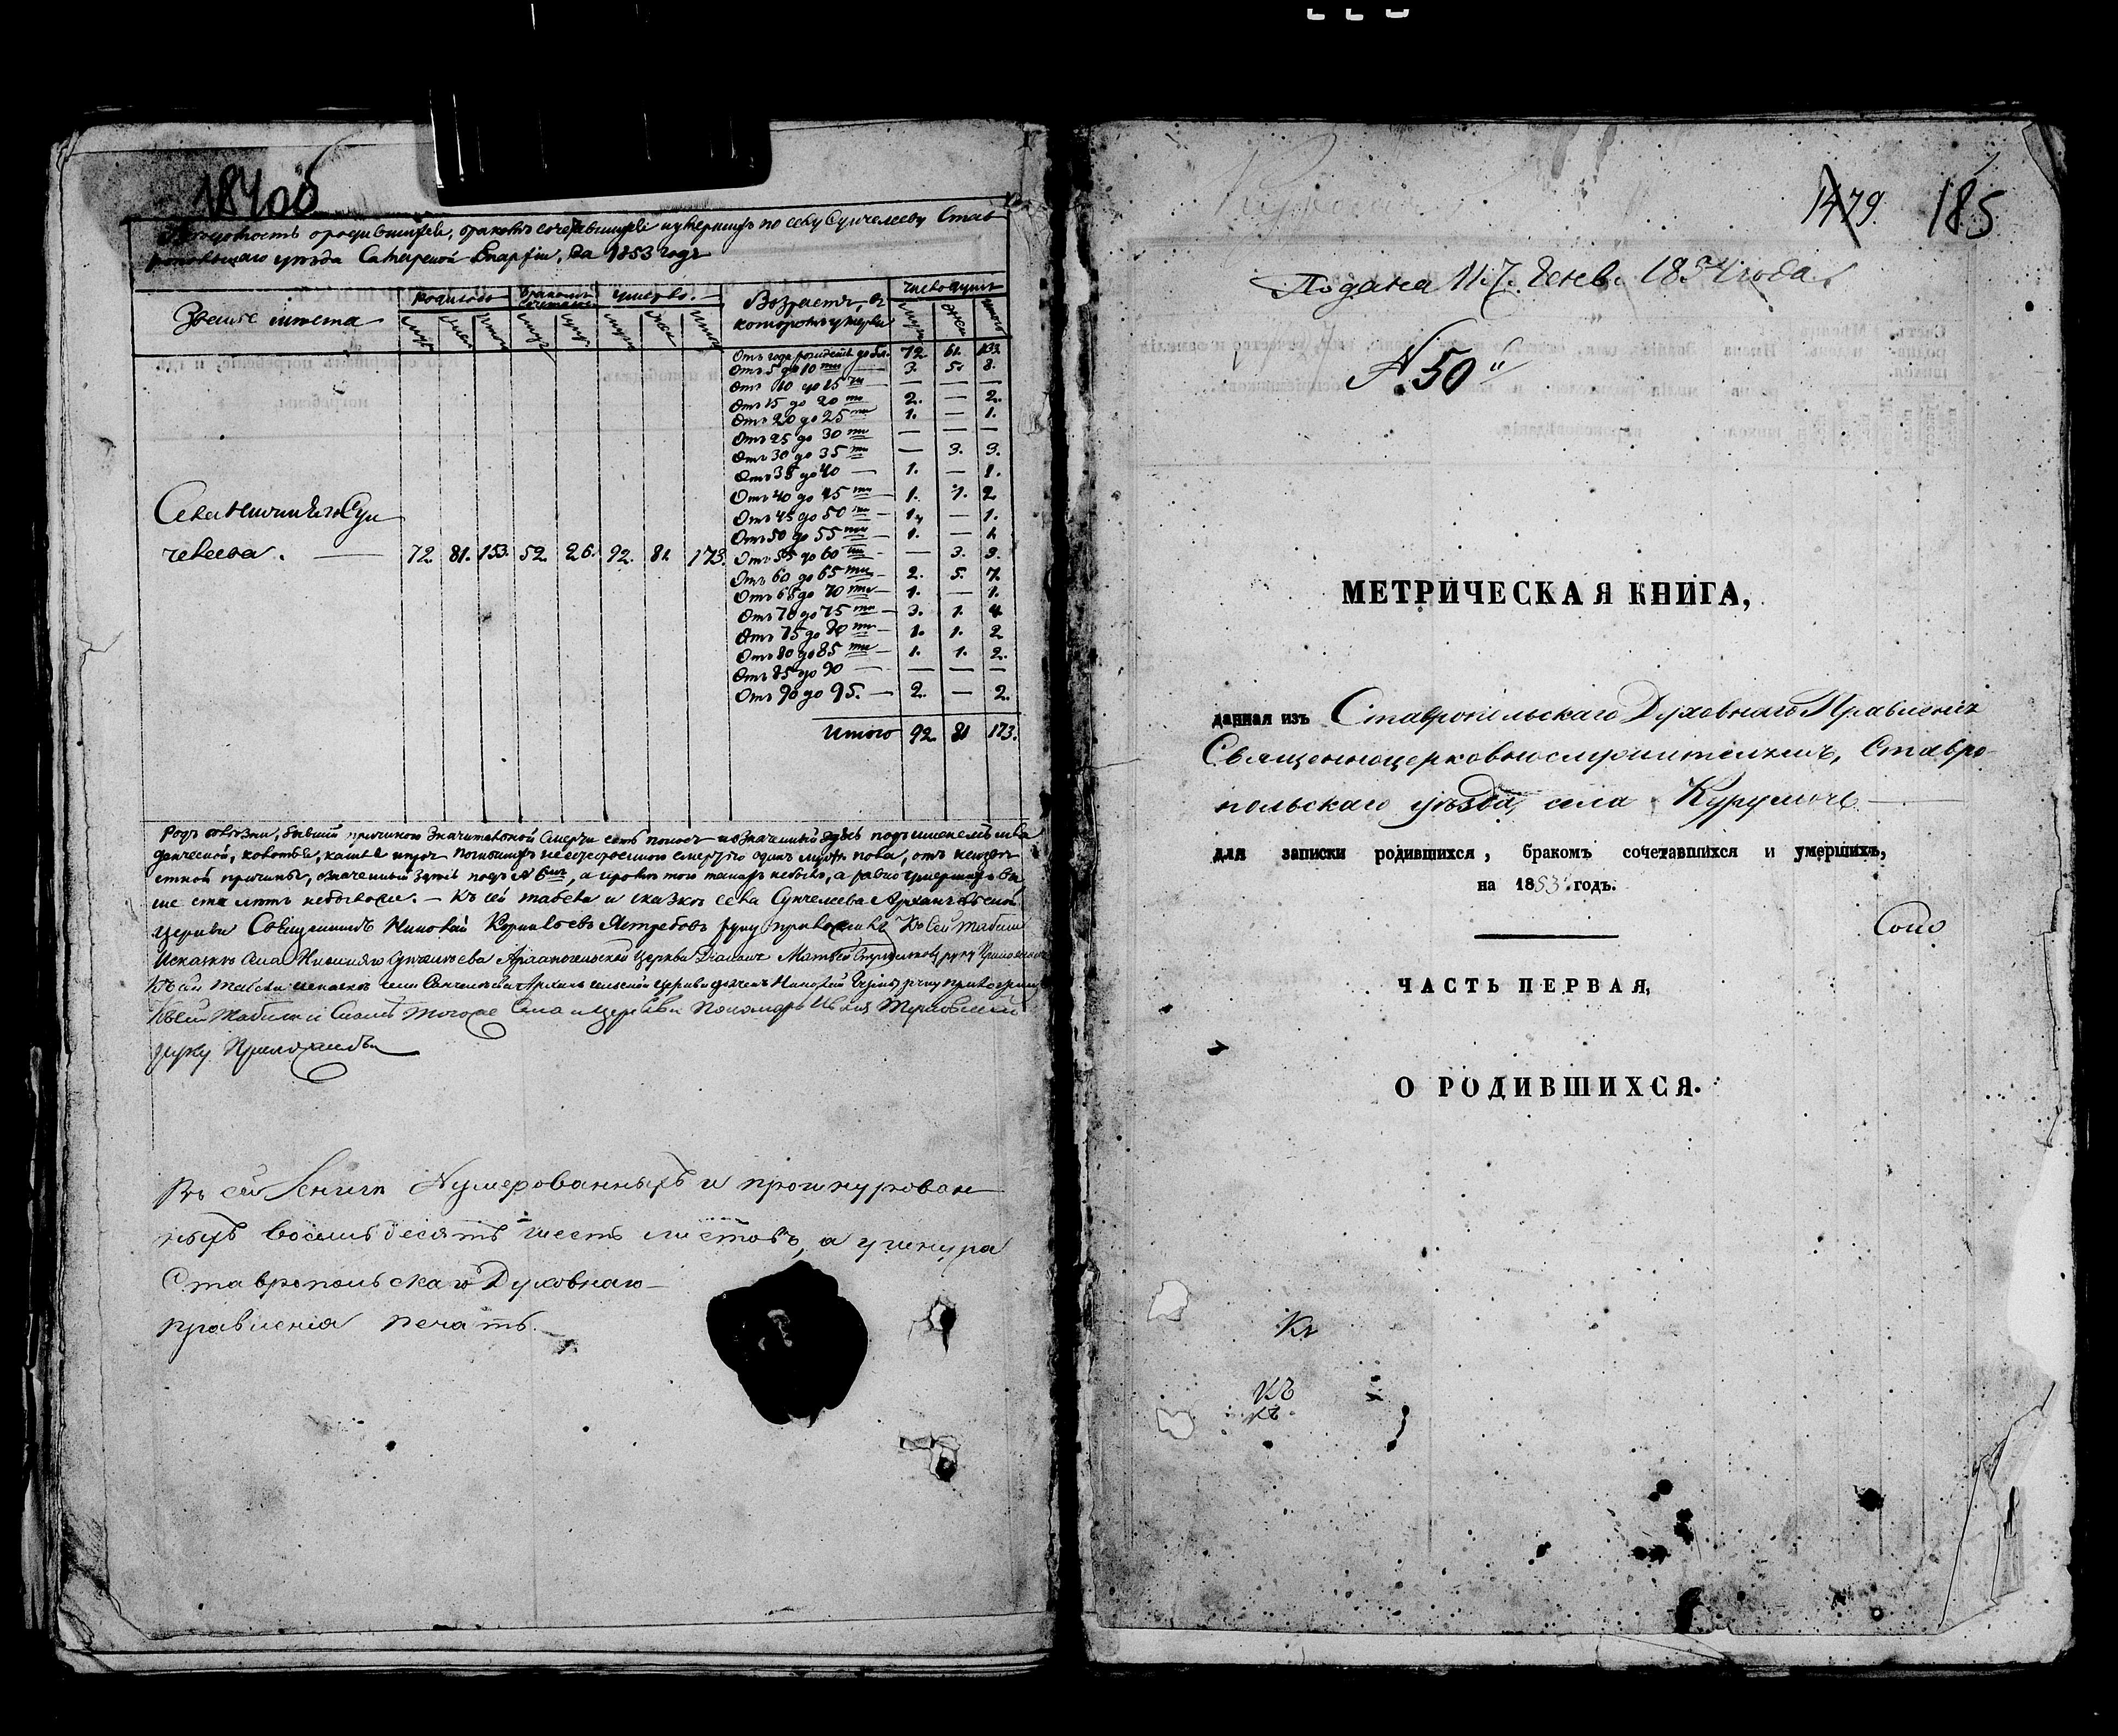 184об
Ведомость о родившихся, бракомъ сочетавшихся и умершихъ по селу Сунчелееву Став
ропольскаго уѣзда Самарской Епархіи, за 1853 годъ
Званіе мѣста
Родилось
Бракомъ сочеталось
Умерло.
Возрастъ, въ которомъ умерли
Число душъ
Муж. Жен. Итого
Муж. Супр.
Муж. Жен. Итого
Муж. Жен. Итого
Отъ года рожденія до 5. 72. 61. 133.
Отъ 5 до 10 ти — 3. 5. 8.
Отъ 10 до 15 ти — — — —
Отъ 15 до 20 ти 2. — 2.
Отъ 20 до 25 ти 1. — 1.
Отъ 25 до 30 ти — — —
Отъ 30 до 35 ти — 3. 3.
Отъ 35 до 40 — 1. — 1.
Отъ 40 до 45 ти — 1. 1. 2.
Отъ 45 до 50 ти — 1. — 1.
Отъ 50 до 55 ти 1. — 1.
Отъ 55 до 60 ти — — 3. 3.
Отъ 60 до 65 ти — 2. 5. 7.
Отъ 65 до 70 ти — 1. — 1.
Отъ 70 до 75 ти — 3. 1. 4.
Отъ 75 до 80 ти — 1. 1. 2
Отъ 80 до 85 ти — 1. 1. 2.
Отъ 85 до 90 — — — —
Отъ 90 до 95. — 2. — 2.
Итого 92. 81 173.
Села Нижняго Сун
челеева. — 72. 81. 153. 52. 26. 92. 81. 173.
Родъ болѣзни, бывшій причиною значительной смерти есть понос означенный здѣсь подъ именемъ мла
денческой,
стной причины, означенный здѣсь подъ № 6мъ,
ше ста лѣтъ небыло. — Къ сей табели и сказкѣ села Сунчелеева Архангельской
церкви Священникъ Николай Корнильевъ Ястребовъ руку приложилъ Къ сей табели
и сказкѣ села Нижняго Сунчелеева Архангельской Церкви Діаконъ Матвей руку приложилъ
Къ сей табели и сказкѣ села Сунчелеева Архангельской церкви дьячекъ Николай руку приложилъ
Къ сей табели и сказкѣ того же Села и Церкви Пономарь
руку Приложилъ
Въ сей Книгѣ Нумерованныхъ и прошнурован
ныхъ восемьдесятъ шесть листовъ, а у шнура
Ставропольскаго Духовнаго
правленія печать.
1479 185
Подана 11. 7. Генв. 1854 года
№ 50
МЕТРИЧЕСКАЯ КНИГА,
данная изъ Ставропольскаго Духовнаго Правленія
Священноцерковнослужителямъ, Ставро
польскаго уѣзда, села Курумоча —
для записки родившихся, бракомъ сочетавшихся и умершихъ,
на 1853 годъ.
ЧАСТЬ ПЕРВАЯ,
О РОДИВШИХСЯ.
Къ
Къ
Къ